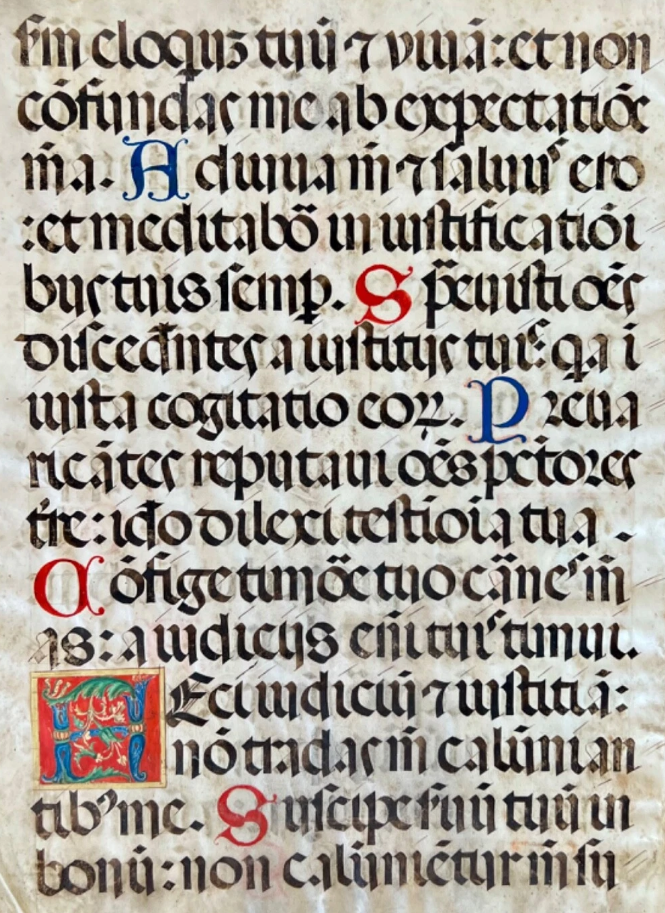 ẜm eloquiʒ tuū ⁊ viuā: et non
cōfundas me ab expectatiōe
m̄a. Adiuua m̄ ⁊ saluus ero
:et meditabō in iustificatiōi
bus tuis semꝑ. Sp̄euisti oēs
discedētes a iustitijs tuis: q̄a i
iusta cogitatio eoꝝ. Preua
ricātes reputaui oēs pctores
tr̄e: idō dilexi testioia tua.
Cōfige timōe tuo cānes m̄
as: a iudicijs eni tuis timui.
Feci iudiciū ⁊ iustitiā:
nō tradas m̄ calūnian
tibꝰ me. Suscipe ẜuū tuū in
bonū: non calūniētur m̄ su